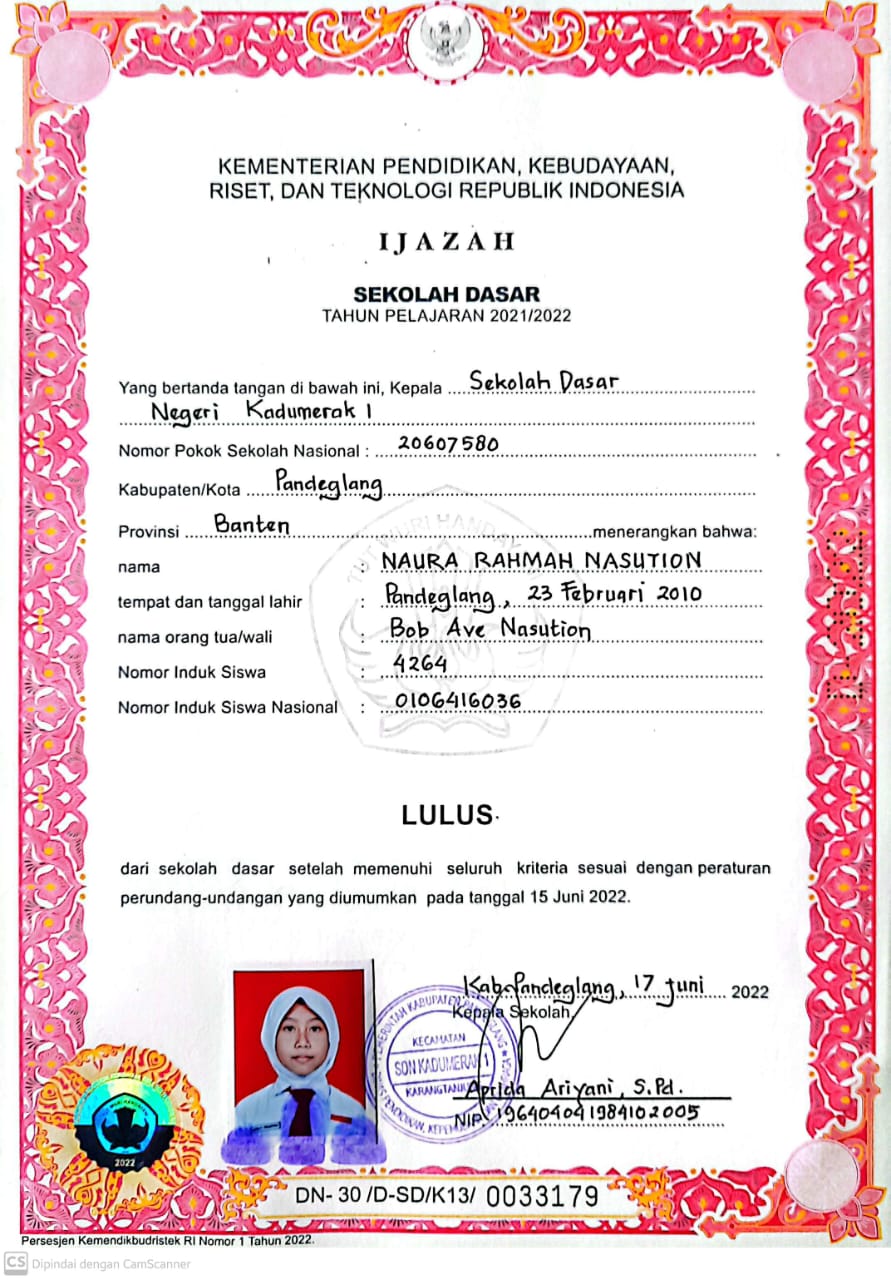 KEMENTERIAN PENDIDIKAN, KEBUDAYAAN,
RISET, DAN TEKNOLOGI REPUBLIK INDONESIA
IJAZAH
SEKOLAH DASAR
TAHUN PELAJARAN 2021/2022
Yang bertanda tangan di bawah ini, Kepala Sekolah Dasar
Negeri Kadumerak 1
Nomor Pokok Sekolah Nasional : 20607580
Kabupaten/Kota Pandeglang
Provinsi Banten menerangkan bahwa:
TUT WURI HANDAY
nama : NAURA RAHMAH NASUTION
tempat dan tanggal lahir : Pandeglang, 23 Februari 2010
nama orang tua/wali : Bob Ave Nasution
Nomor Induk Siswa : 4264
Nomor Induk Siswa Nasional : 0106416036
LULUS
dari sekolah dasar setelah memenuhi seluruh kriteria sesuai dengan peraturan
perundang-undangan yang diumumkan pada tanggal 15 Juni 2022.
Kab. Pandeglang, 17 Juni 2022
Kepala Sekolah,
PEMERINTAH KABUPATEN
KECAMATAN
SDN KADUMERAK 1
Aprida Ariyani, S.Pd.
NIP. 196404041984102005
2022
DN- 30 /D-SD/K13/ 0033179
Persesjen Kemendikbudristek RI Nomor 1 Tahun 2022.
CS Dipindai dengan CamScanner